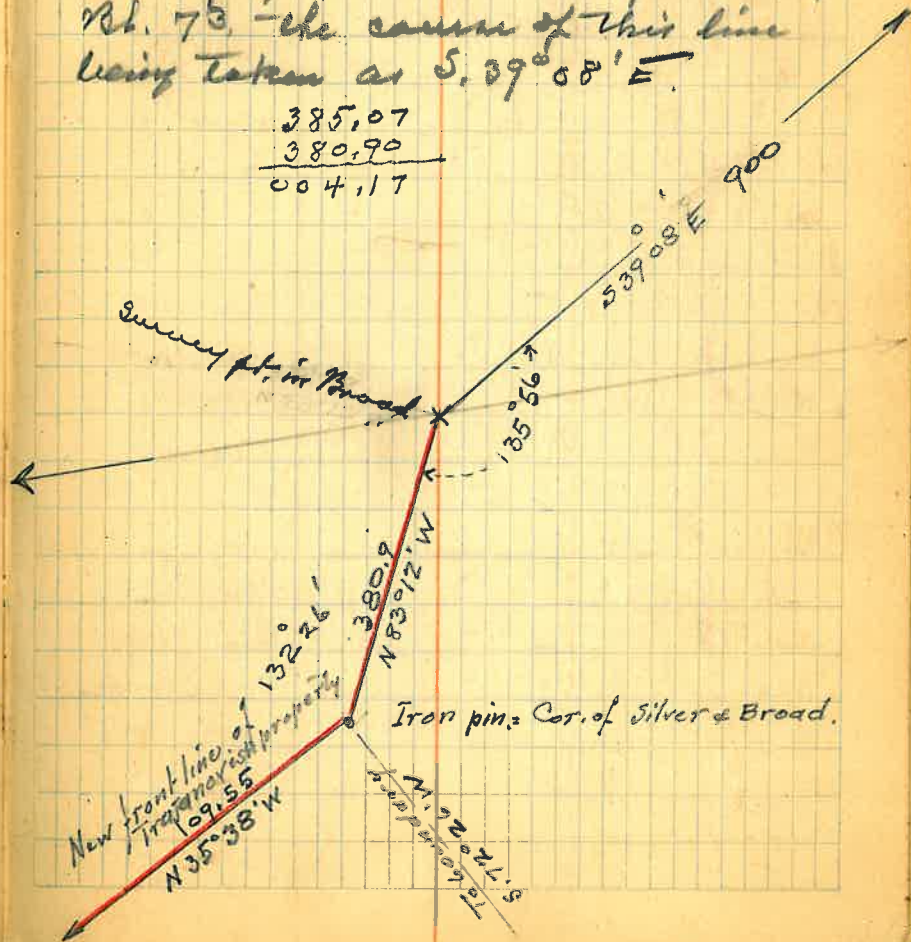 Bk. 73, the course of this line
being taken as S. 39° 08' E.
385.07
380.90
004.17
900
S 39° 08' E
Survey pt. in Broad
135° 56'
380.9
N 83° 12' W
132° 26'
Iron pin = Cor. of Silver & Broad.
New front line of
property
109.55
N 35° 38' W
S. 72° 26' W.